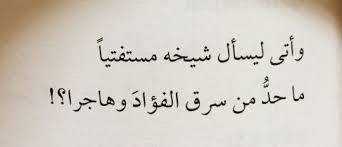 وأتى ليسأل شيخه مستفتياً
ما حدُّ من سرق الفؤادَ وهاجرا؟!